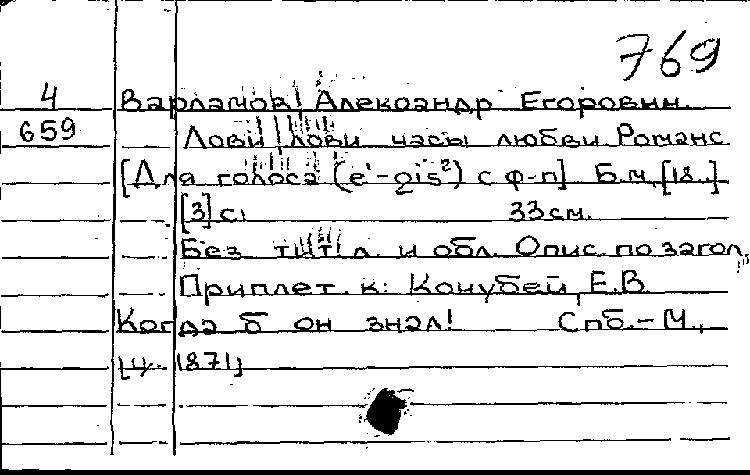 769
4 Варламов, Александр Егорович.
659 Лови, лови часы любви. Романс
[Для голоса (e¹-gis²) с ф-п] Б.м, [18..]
[3] с. 33 см.
Без тит. л. и обл. Опис. по загол.
Приплет. к: Кочубей, Е.В.
Когда б он знал! Спб.-М.,
[ц. 1871]